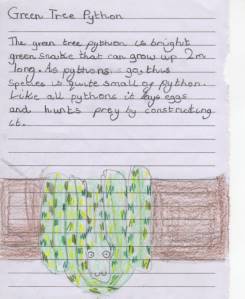 Green Tree Python
The green tree python is bright
green snake that can grow up 2m
long. As pythons go, this
species is quite small of python.
Like all pythons it lays eggs
and hunts prey by constructing
it.